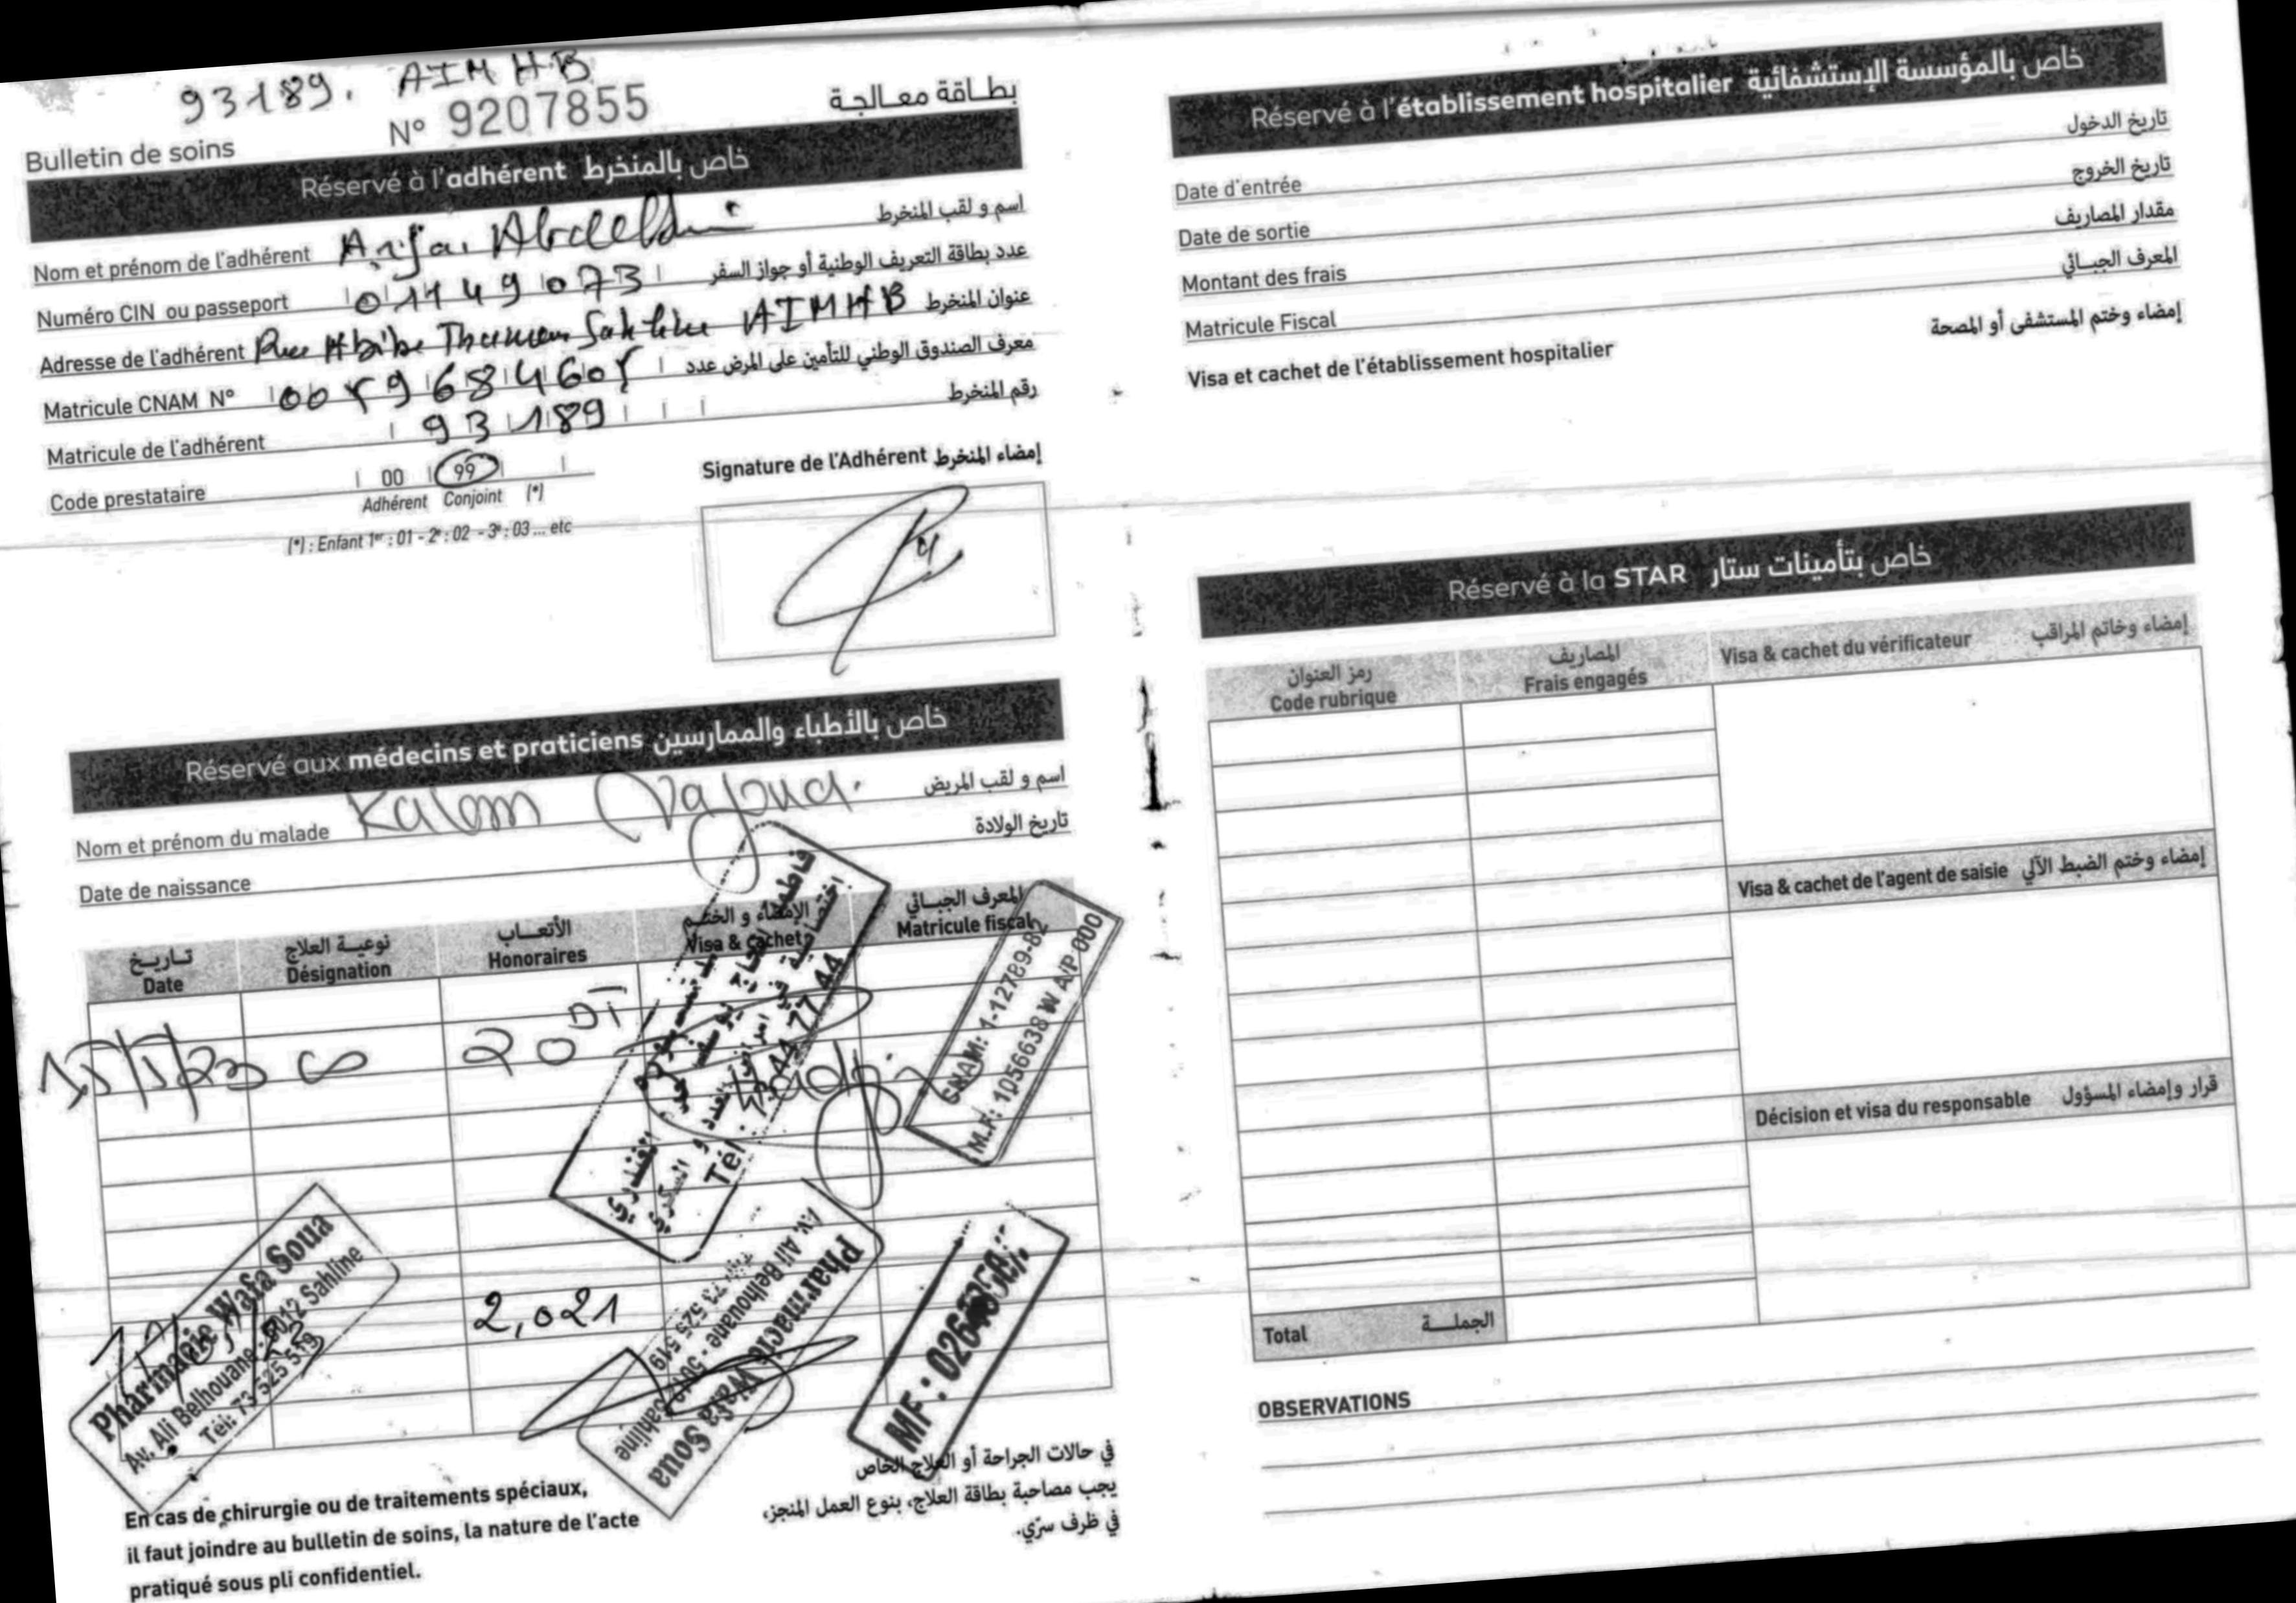 93189. AIM HB
Bulletin de soins N° 9207855 بطاقة معالجة
Réservé à l'adhérent خاص بالمنخرط
Nom et prénom de l'adhérent اسم و لقب المنخرط
Numéro CIN ou passeport 01149073 عدد بطاقة التعريف الوطنية أو جواز السفر
Adresse de l'adhérent Rue AIMHB عنوان المنخرط
Matricule CNAM N° معرف الصندوق الوطني للتأمين على المرض عدد
Matricule de l'adhérent 93189 رقم المنخرط
Code prestataire 00 99
Adhérent Conjoint (*)
(*) : Enfant 1er : 01 - 2e : 02 - 3e : 03 ... etc
Signature de l'Adhérent إمضاء المنخرط
Réservé aux médecins et praticiens خاص بالأطباء والممارسين
Nom et prénom du malade اسم و لقب المريض
Date de naissance تاريخ الولادة
تاريخ نوعية العلاج الأتعاب الإمضاء و الختم المعرف الجبائي
Date Désignation Honoraires Visa & cachet Matricule fiscal
20 DT
Tél : 73 44 77 44
CNAM: 1-12789-82
M.F: 1056638 W A/P 000
2,021
Pharmacie Wafa Soua
Av. Ali Belhouane - 5012 Sahline
Tél: 73 525 519
Pharmacie Wafa Soua
Av. Ali Belhouane - 5012 Sahline
73 525 519
MF :
En cas de chirurgie ou de traitements spéciaux,
il faut joindre au bulletin de soins, la nature de l'acte
pratiqué sous pli confidentiel.
في حالات الجراحة أو العلاج الخاص
يجب مصاحبة بطاقة العلاج، بنوع العمل المنجز،
في ظرف سرّي.
Réservé à l'établissement hospitalier خاص بالمؤسسة الإستشفائية
Date d'entrée تاريخ الدخول
Date de sortie تاريخ الخروج
Montant des frais مقدار المصاريف
Matricule Fiscal المعرف الجبائي
Visa et cachet de l'établissement hospitalier إمضاء وختم المستشفى أو المصحة
Réservé à la STAR خاص بتأمينات ستار
رمز العنوان المصاريف
Code rubrique Frais engagés Visa & cachet du vérificateur إمضاء وخاتم المراقب
Visa & cachet de l'agent de saisie إمضاء وختم الضبط الآلي
Décision et visa du responsable قرار وإمضاء المسؤول
Total الجملة
OBSERVATIONS